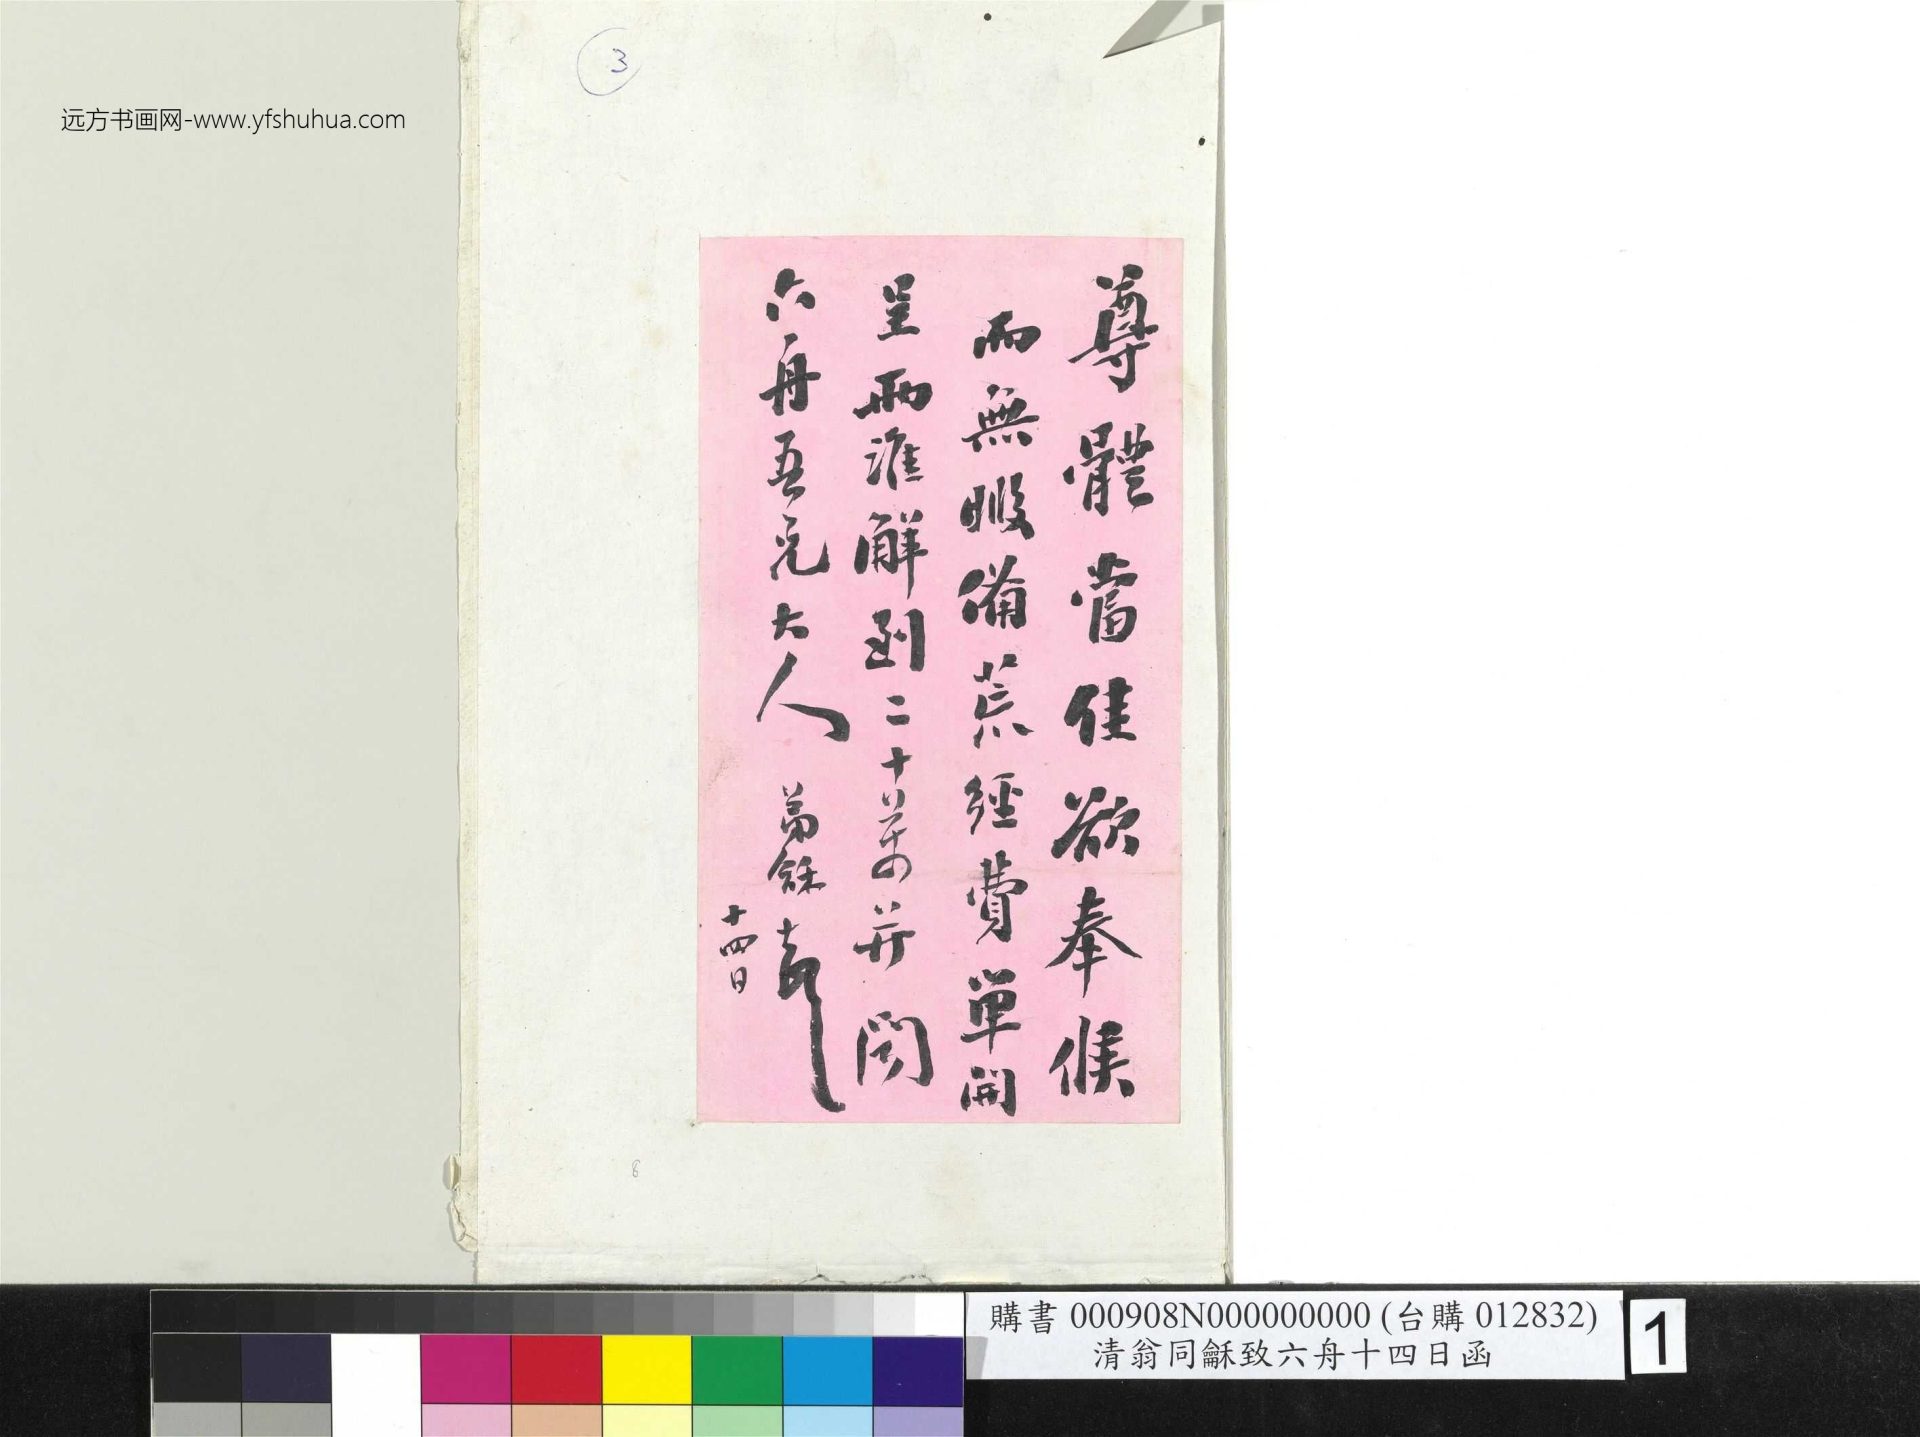 3
远方书画网-www.yfshuhua.com
尊體當佳欲奉候
而無暇備荒經費單開
呈兩淮解到二十萬并聞
六舟吾兄大人 弟龢
十四日
8
購書 000908N000000000 (台購 012832)
清翁同龢致六舟十四日函
1